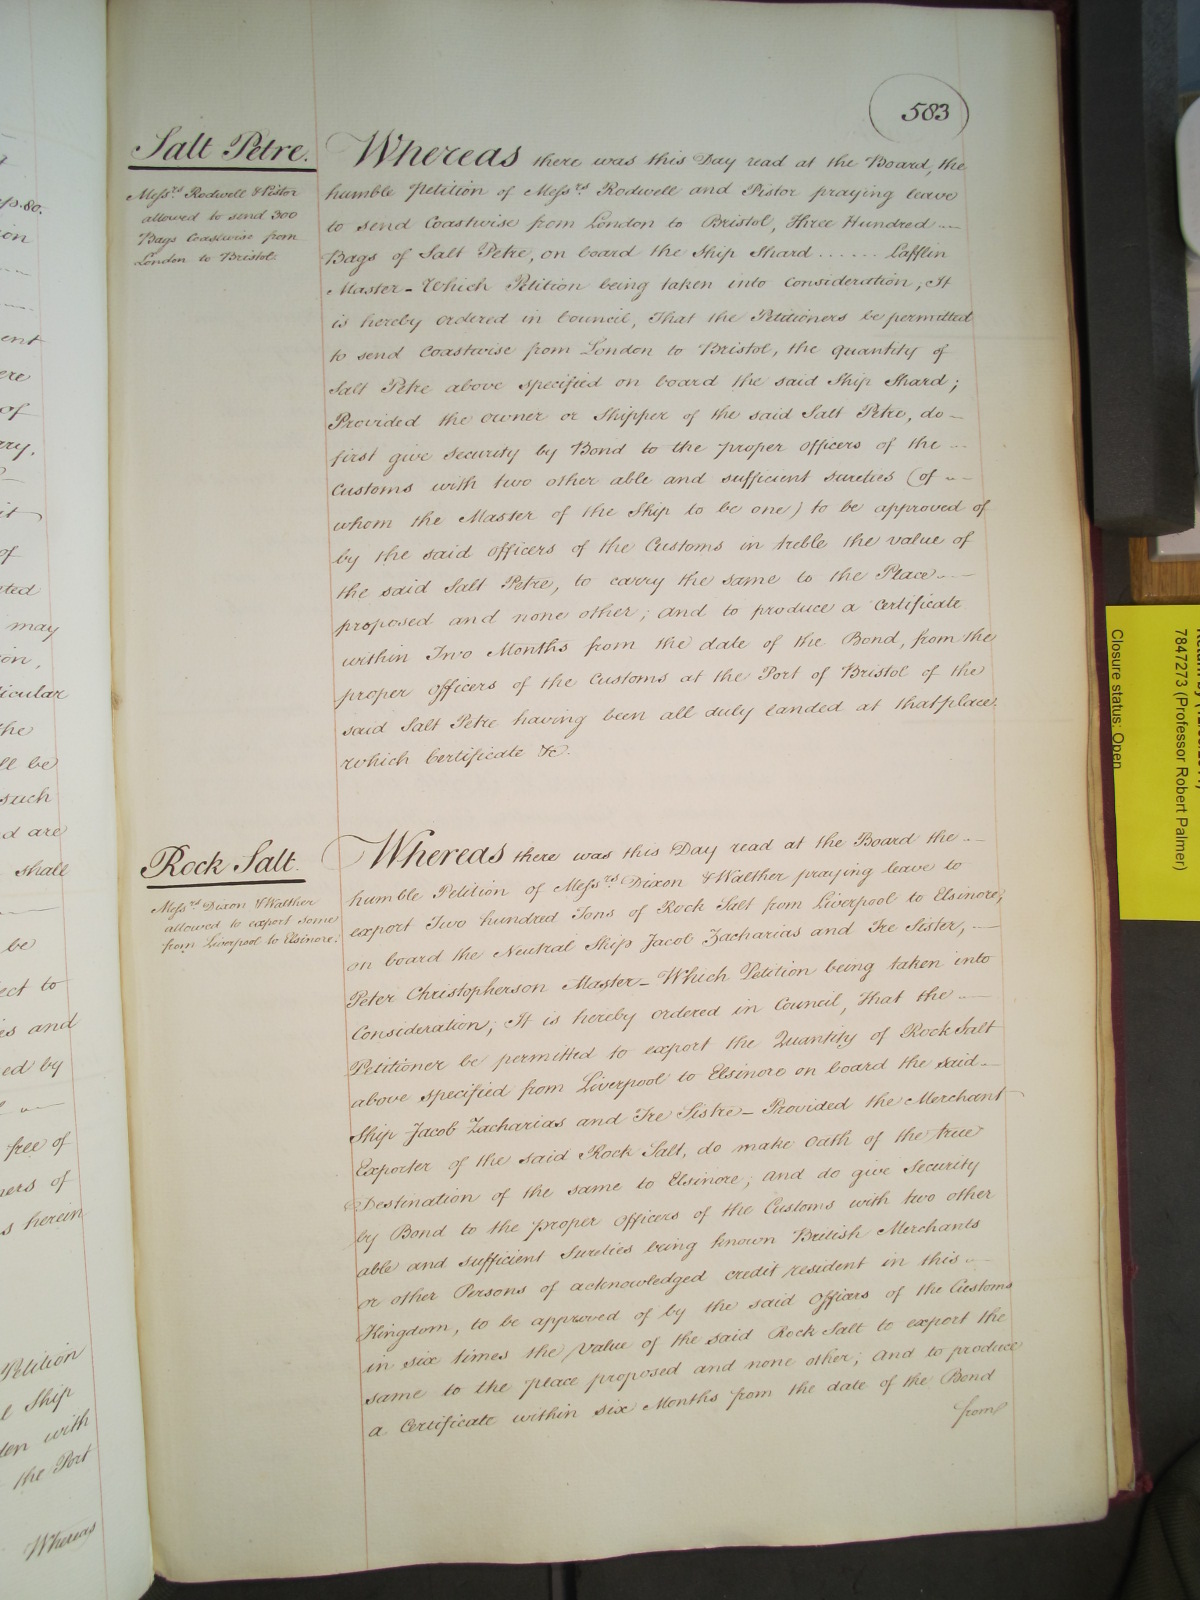 583
Salt Petre.
Mess.rs Rodwell & Pistor
allowed to send 300
Bags Coastwise from
London to Bristol.
Whereas there was this Day read at the Board, the
humble Petition of Mess.rs Rodwell and Pistor praying leave
to send Coastwise from London to Bristol, Three Hundred
Bags of Salt Petre, on board the Ship Shard ...... Lafflin
Master - Which Petition being taken into Consideration, It
is hereby ordered in Council, That the Petitioners be permitted
to send Coastwise from London to Bristol, the quantity of
Salt Petre above specified on board the said Ship Shard;
Provided the owner or Shipper of the said Salt Petre, do
first give security by Bond to the proper officers of the
Customs with two other able and sufficient sureties (of
whom the Master of the Ship to be one) to be approved of
by the said officers of the Customs in treble the value of
the said Salt Petre, to carry the same to the Place
proposed and none other; and to produce a Certificate
within Two Months from the date of the Bond, from the
proper officers of the Customs at the Port of Bristol of the
said Salt Petre having been all duly landed at that place.
which Certificate &c.
Rock Salt.
Mess.rs Dixon & Walther
allowed to export some
from Liverpool to Elsinore.
Whereas there was this Day read at the Board the
humble Petition of Mess.rs Dixon & Walther praying leave to
export Two hundred Tons of Rock Salt from Liverpool to Elsinore;
on board the Neutral Ship Jacob Zacharias and Tre Sister,
Peter Christopherson Master - Which Petition being taken into
Consideration; It is hereby ordered in Council, That the
Petitioner be permitted to export the Quantity of Rock Salt
above specified from Liverpool to Elsinore on board the said
Ship Jacob Zacharias and Tre Sistre - Provided the Merchant
Exporter of the said Rock Salt, do make Oath of the true
Destination of the same to Elsinore; and do give Security
by Bond to the proper Officers of the Customs with two other
able and sufficient Sureties being known British Merchants
or other Persons of acknowledged credit resident in this
Kingdom, to be approved of by the said Officers of the Customs
in six times the value of the said Rock Salt to export the
same to the place proposed and none other; and to produce
a Certificate within six Months from the date of the Bond
from
ent
of
may
the
ll be
such
d are
shall
be
ect to
and
ed by
free of
of
herein
Petition
Ship
with
the Port
Whereas
7847273 (Professor Robert Palmer)
Closure status: Open